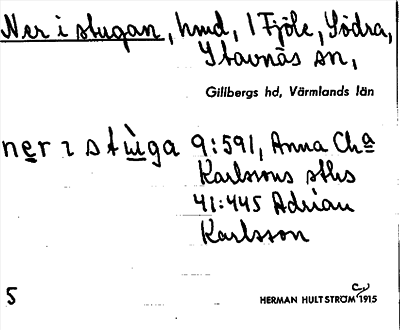 Ner i stugan, hmd, 1 Fjöle, Södra,
Stavnäs sn,
Gillbergs hd, Värmlands län
ner ı stùga 9:591, Anna Cha
Karlssons sths
41:445 Adrian
Karlsson
5
HERMAN HULTSTRÖM 1915